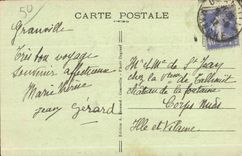 50
CARTE POSTALE
Granville
Très bon voyage
Souvenir affectueux
Marie Thérèse
Jean Gérard
Mr & Mme de St Jean
chez la Vsse de
château de la fontaine
Corps Nuds
Ille et Vilaine